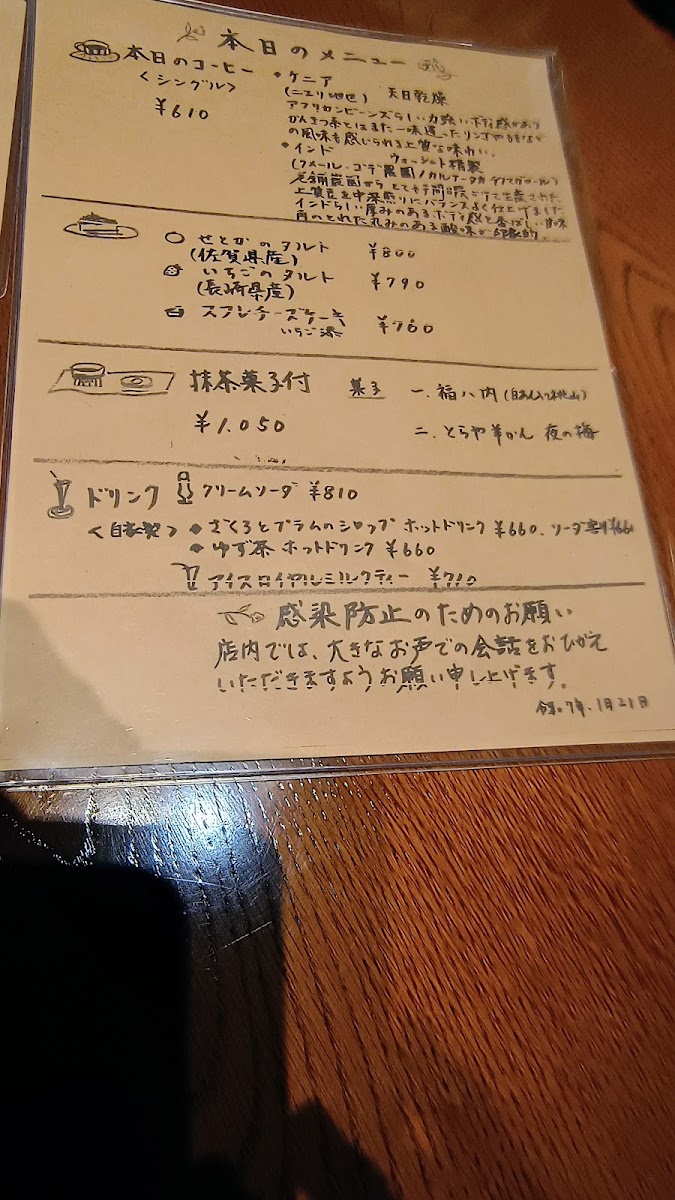 本日のメニュー
本日のコーヒー
<シングル>
¥610
・ケニア
(ニエリ地域) 天日乾燥
アフリカンビーンズらしい力強いボディ感があり
かんきつ系とはまた一味違ったリンゴや
の風味も感じられる上質な味わい。
・インド
ウォーシュト精製
農園 / カルナータカ
老舗農園から とても手間暇かけて生産された
上質豆を中深煎りにバランスよく仕上げました
インドらしい厚みのあるボディ感と香ばしい甘味
角のとれた丸みのある酸味が印象的。
せとかのタルト ¥800
(佐賀県産)
いちごのタルト ¥790
(長崎県産)
スフレチーズケーキ ¥760
いちご添
抹茶菓子付
¥1.050
菓子 一. 福ハ内 (白あん入り桃山)
二. とらや羊かん 夜の梅
ドリンク クリームソーダ ¥810
<自家製> ・ざくろとプラムのシロップ ホットドリンク ¥660. ソーダ割り¥660
・ゆず茶 ホットドリンク ¥660
アイスロイヤルミルクティー ¥710
感染防止のためのお願い
店内では、大きなお声での会話をおひかえ
いただきますようお願い申し上げます。
令和7年.1月21日